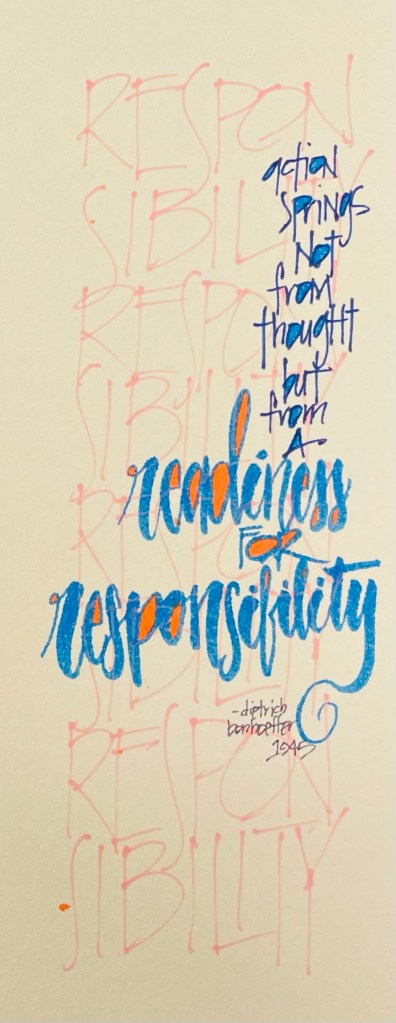 RESPON
SIBILITY
RESPON
SIBILITY
RESPON
SIBILITY
RESPON
SIBILITY
action
springs
not
from
thought
but
from
A
readiness
FOR
responsibility
-dietrich
bonhoeffer
1945